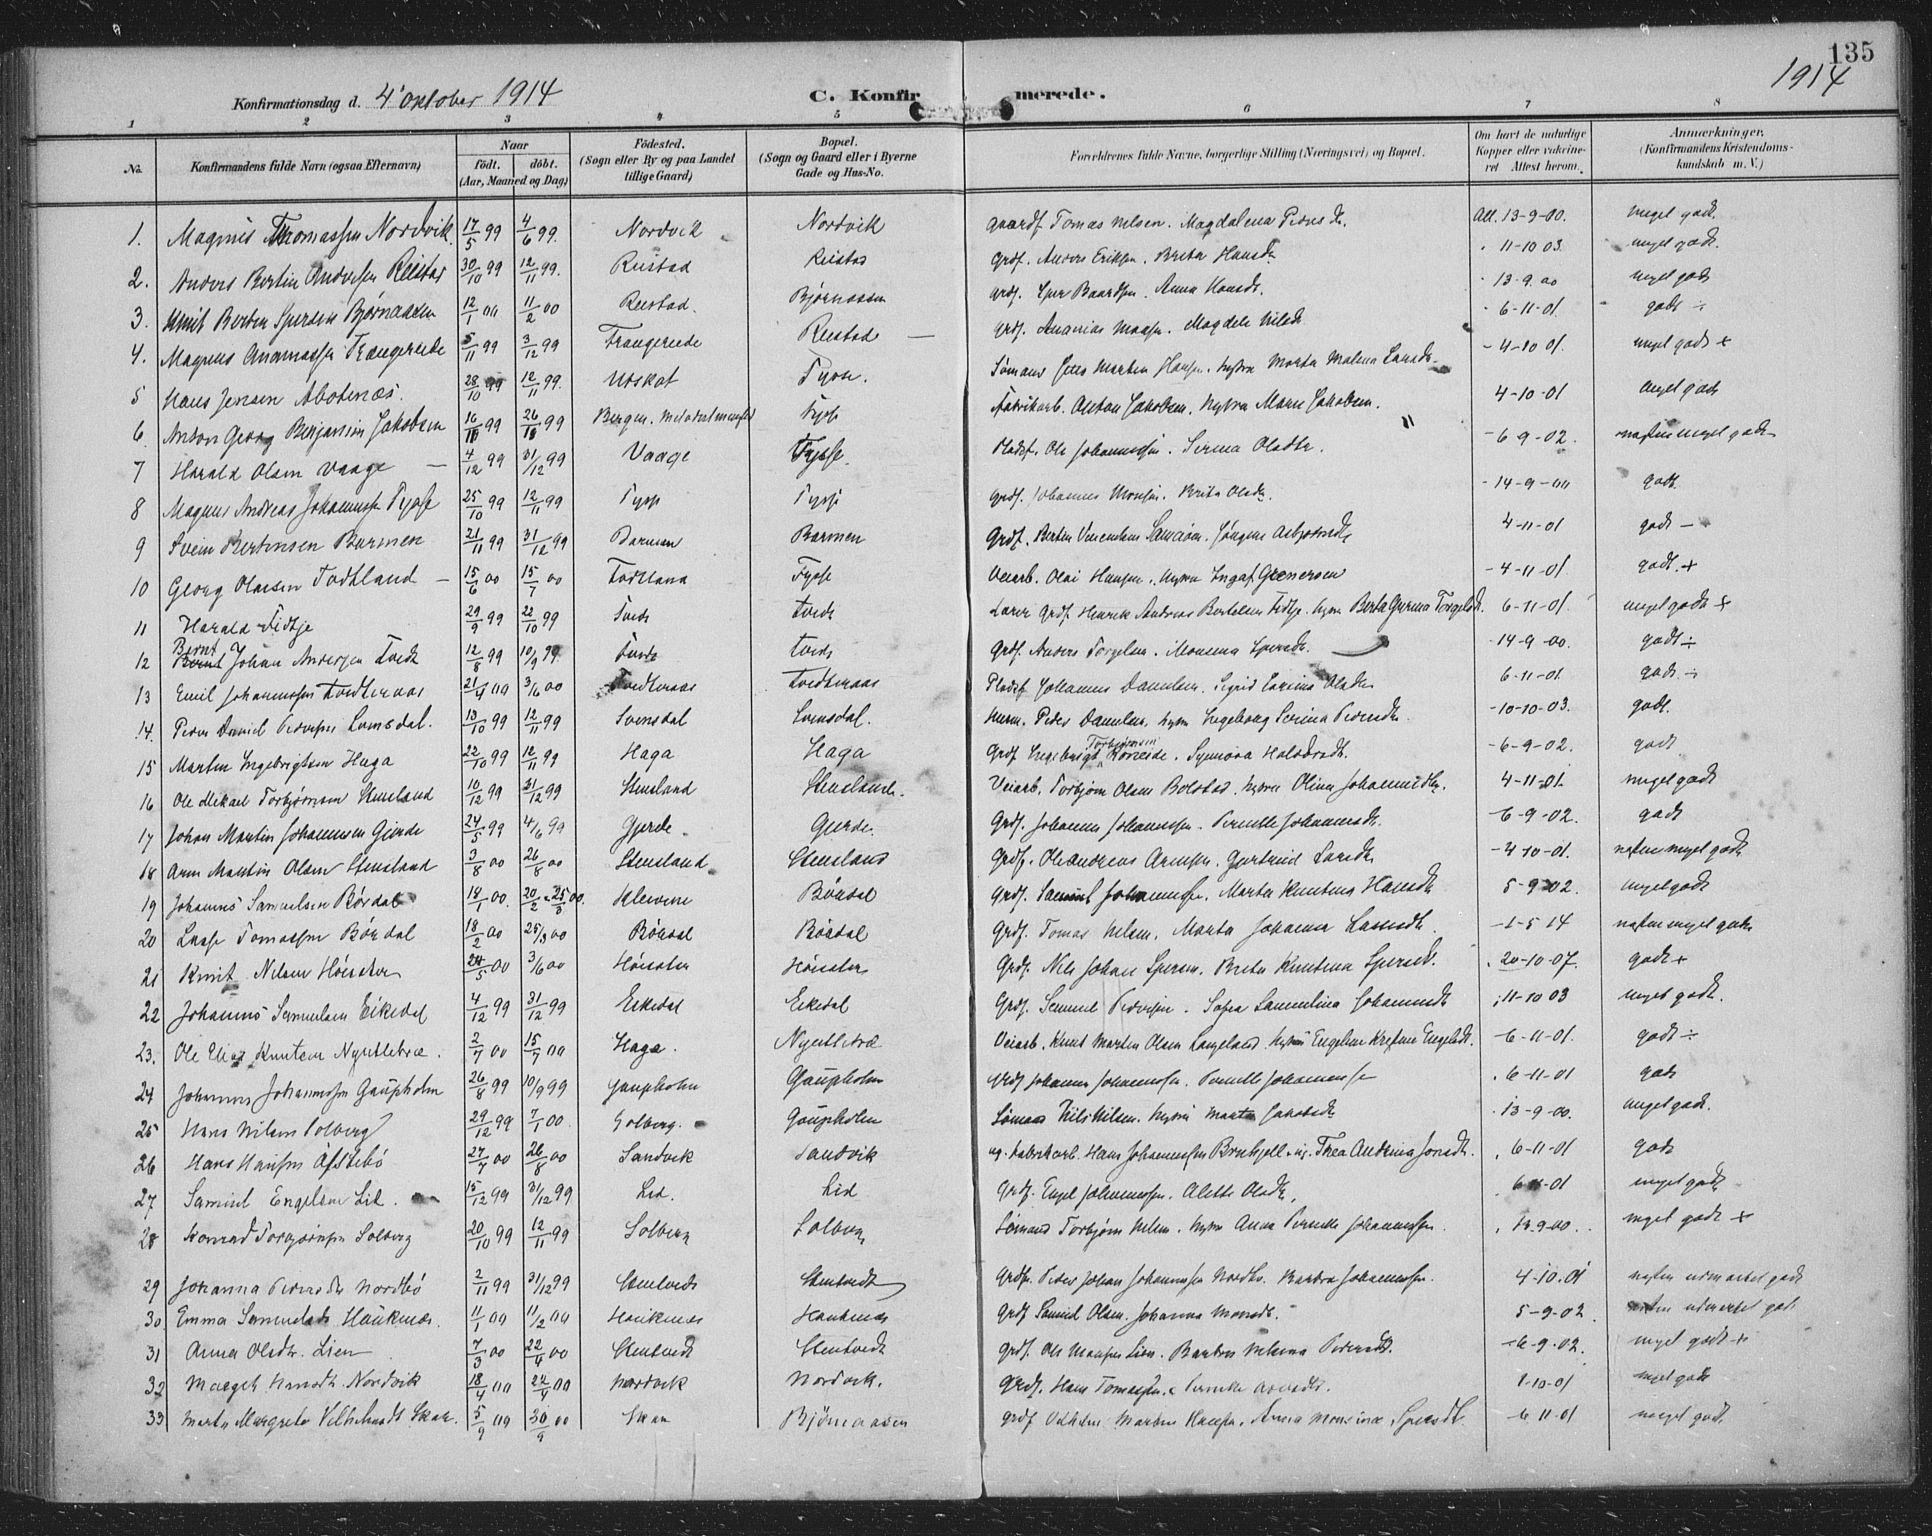 135
1914
Konfirmationsdag d. 4' Oktober 1914 C. Konfirmerede.
1 2 3 4 5 6 7 8
No. Konfirmandens fulde Navn (ogsaa Efternavn) Naar født. døbt. (Aar, Maaned og Dag) Födested. (Sogn eller By og paa Landet tillige Gaard) Bopæl. (Sogn og Gaard eller i Byerne Gade og Hus-No. Forældrenes fulde Navne, borgerlige Stilling (Næringsvei) og Bopæl. Om havt de naturlige Kopper eller vakcineret Attest herom. Anmærkninger. (Konfirmandens Kristendomskundskab m. V.)
1. Magnus Thomassen Nordvik 17/5 99 4/6 99. Nordvik Nordvik gaardf. Tomas Nilsen. Magdalena Pedersdtr Att. 13-9-00. meget godt.
2. Anders Bertin Andersen Reistad 30/10 99 12/11 99. Reistad Reistad grdf. Anders Eriksen. Brita Hansdtr 11-10 03. meget godt.
3. Bjørnaasen 12/1 00 11/2 00 Reistad. Bjørnaasen grdf. Sjur Baardsen. Anna Hansdtr. 13-9-00 meget godt
4. Magnus Ananiassen Trængereide 5/11 99 3/12 99 Trængereide Reistad — grdf. Ananias Monsen. Magdele Nilsdtr 6-11-01. godt ÷
5 Hans Jensen Abotnæs. 28/10 99 12/11 99. Utskot Tysse. Sømand Jens Martin Hansen. hustru Marta Malena Larsdtr. -4-10 01. meget godt +
6. Anton Georg Benjamin Jakobsen 16/10 99 26/10 99 Bergen. Tysse Fabrikarb. Anton Jakobsen. hustru Marie Jakobsen. 4-10-01 meget godt
7 Harald Olsen Vaage — 4/12 99 31/12 99 Vaage Tysse. Pladsf. Ole Johannessen. Serina Olsdtr. -6 9-02. næsten meget godt
8 Magnus Andreas Johannessen Tysse 25/10 99 12/11 99 Tysse Tysse grdf. Johannes Monsen. Brita Olsdtr. -14-9-00 godt.
9 Svein Bertinsen Barmen 21/11 99 31/12 99 Barmen Barmen Grdf. Bertin 4-11-01 godt —
10 Georg Olaisen Todtland — 15/6 00 15/7 00 Todtland Tysse Veiarb. Olai Hansen. hustru -4-11-01 godt. +
11 Harald Fidtje 29/9 99 22/10 99 Tvedt Tvedt Lærer Grdf. Henrik Andreas Bertelsen Fidtje. hustru Berta Gurina Torgelsdtr. 6-11-01. meget godt +
12 Bernt Johan Andersen Tvedt 12/8 99 10/9 99. Tvedt Tvedt Grdf. Anders Torgelsen. Monsina Sjursdtr. -14-9-00. godt ÷
13 Emil Johannessen Tvedteraas 21/4 00 3/6 00 Tvedteraas Tvedteraas Pladsf. Johannes Danielsen. Sigrid Olsdtr 6-11-01. godt. ÷
14. Peder Daniel Pedersen Svensdal. 13/10 99 12/11 99 Svensdal Svensdal. Husm. Peder Danielsen, hustru Ingeborg Serina Pedersdtr. -10-10-03. godt.
15 Martin Ingebrigtsen Haga 22/10 99 12/11 99 Haga Haga Grdf. Ingebrigt Torbjørnsen. Synnøva -6-9-02. godt
16 Ole Mikael Torbjørnsen Stensland 10/12 99 31/12 99 Stensland Stensland. Veiarb. Torbjørn Olsen Bolstad. hustru Olina Johannesdtr. 4-11-01. meget godt
17 Johan Martin Johannessen Gjerde 24/5 99 4/6 99 Gjerde. Gjerde. Grdf. Johannes Johannessen. Pernille Johannesdtr. -6-9-02. godt
18 Arne Martin Olsen Stensland 3/8 00 26/8 00 Stensland Stensland Grdf. Ole Andreas Arnesen. Gjertrud Larsdtr -4 10-01. næsten meget godt
19 Johannes Samuelsen Børdal 18/1 00. 20/2 - 25/3 00. Kleivene Børdal Grdf. Samuel Johannessen. Marta Knutina Hansdtr 5-9-02. meget godt
20 Lasse Tomassen Børdal 18/2 00 25/3 00 Børdal Børdal Grdf. Tomas Nilsen. Marta Johanna Lassedtr. -1-5 14 næsten meget godt
21 Knut Nilsen Hønster 24/5 00 3/6 00 Hønster Hønster Grdf. Nils Johan Sjursen. Brita Knutina Sjursdtr. 20-10-07. godt +
22 Johannes Samuelsen Eikedal 4/12 99 31/12 99 Eikedal Eikedal Grdf. Samuel Pedersen. Sofia Samuelina Johannesdtr 11-10 03 meget godt.
23. Ole Elias Knutsen 2/7 00 15/7 00 Haga. Veiarb. Knut Martin Olsen Langeland. hustru -6-11-01. godt ÷
24 Johannes Johannessen Gaupholm 26/8 99 10/9 99 Gaupholm Gaupholm Grdf. Johannes Johannessen. Pernille Johannessen 6-11-01 godt
25 Hans Nilsen Solberg 29/12 99 7/1 00. Solberg. Gaupholm Sømand Nils Nilsen. hustru Marta Jakobsdtr 13-9-00. meget godt.
26 Hans Hansen Afstebø 27/7 00 26/8 00 Sandvik Sandvik ug. Fabrikarb. Hans Johannessen, ug. Thea Andrina Jonsdtr. 6-11-01 godt
27 Samuel Engelsen Lid. 15/12 99 31/12 99 Lid. Lid Grdf. Engel Johannessen. Alette Olsdtr, 6-11-01 meget godt
28 Konrad Torbjørnsen Solberg 20/10 99 12/11 99 Solberg Solberg Sømand Torbjørn Nilsen. hustru Anna Pernille Johannessen. 13-9-00. meget godt +
29 Johanna Pedersdtr Nordbø 2/11 99 31/12 99 Stentvedt Stentvedt Grdf. Peder Johan Johannessen Nordbø. Barbra Johannessen. 4-10-01 næsten udmærket godt
30. Emma Samuelsdtr Haukenæs. 11/1 00 11/2 00 Haukenæs Haukenæs Grdf. Samuel Olsen. Johanna Monsdtr. 5-9-02. næsten udmærket godt
31 Anna Olsdtr. Lien 7/3 00 22/4 00 Stentvedt Stentvedt Grdf. Ole Monsen Lien. Barbra Nilsina Pedersdtr. -6-9-02. meget godt +
32 Hansdtr. Nordvik 18/4 00 22/4 00 Nordvik Nordvik. Grdf. Hans Tomassen. 1-10-01 meget godt
33 Marta Margreta Vilhelmsdtr Skar. 5/9 00 30/9 00 Skar Bjørnaasen Grdf. Vilhelm Martin Hansen. Anna Monsine Sjursdtr. -6 11-01 meget godt